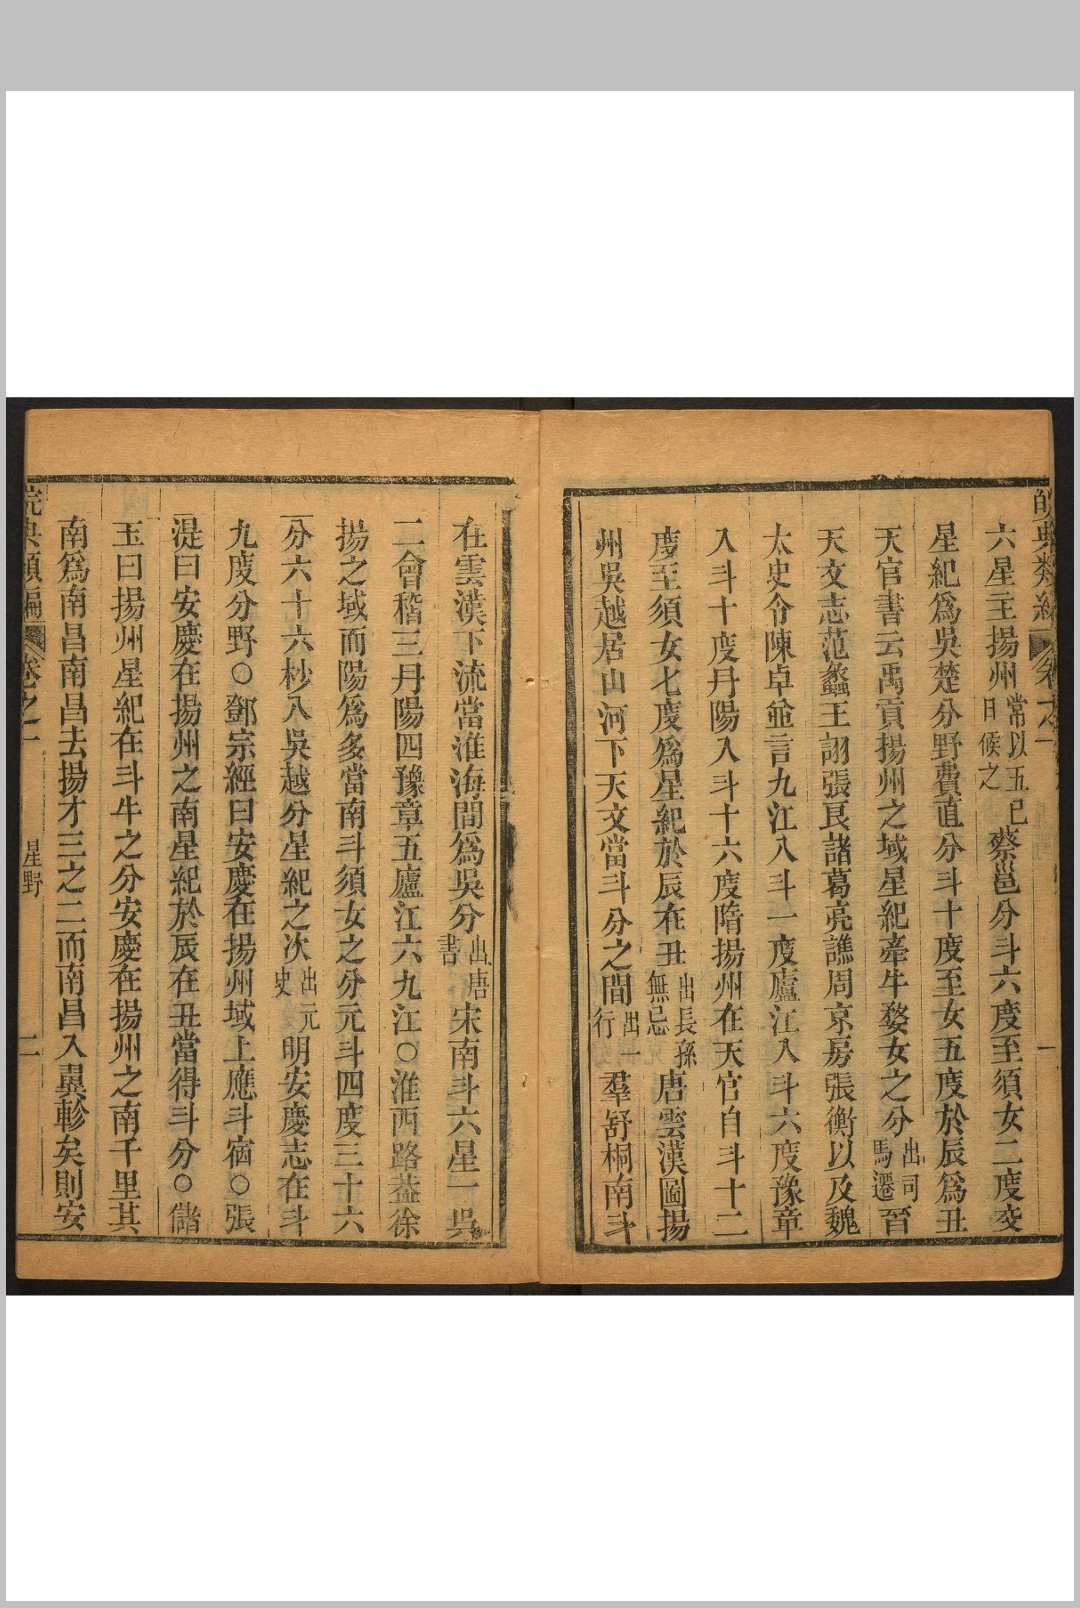 皖典類編 卷之一 一
六星主揚州常以五巳日候之蔡邕分斗六度至須女二度交
星紀爲吳楚分野費直分斗十度至女五度於辰爲丑
天官書云禹貢揚州之域星紀牽牛婺女之分出司馬遷晉
天文志范蠡王詡張良諸葛亮譙周京房張衡以及魏
太史令陳卓竝言九江入斗一度廬江入斗六度豫章
入斗十度丹陽入斗十六度隋揚州在天官自斗十二
度至須女七度爲星紀於辰在丑出長孫無忌唐雲漢圖揚
州吳越居山河下天文當斗分之間出一行羣舒桐南斗
在雲漢下流當淮海間爲吳分出唐書宋南斗六星一吳
二會稽三丹陽四豫章五廬江六九江○淮西路葢徐
揚之域而陽爲多當南斗須女之分元斗四度三十六
分六十六秒入吳越分星紀之次出元史明安慶志在斗
九度分野○鄧宗經曰安慶在揚州域上應斗宿○張
湜曰安慶在揚州之南星紀於辰在丑當得斗分○儲
玉曰揚州星紀在斗牛之分安慶在揚州之南千里其
南爲南昌南昌去揚才三之二而南昌入翼軫矣則安
皖典類編 卷之一 星野 二